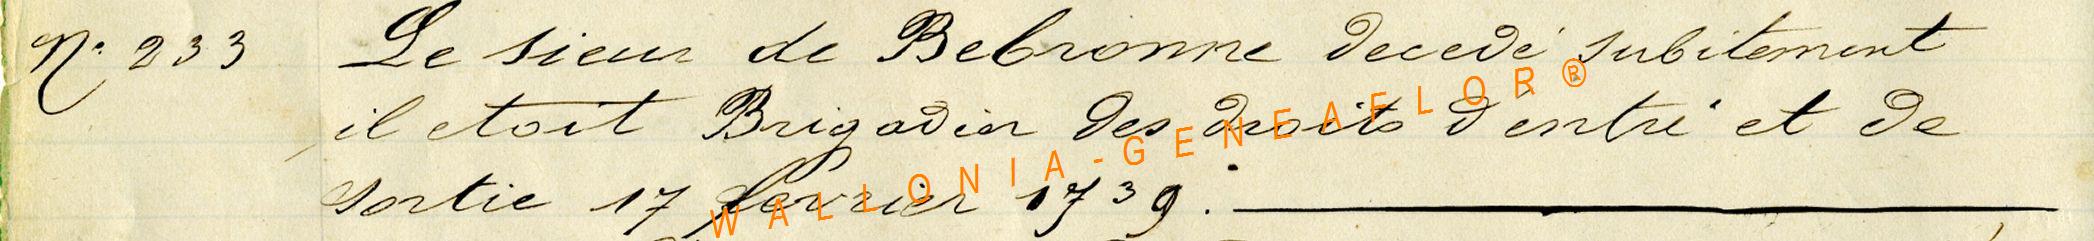 N° 233 Le sieur de Bebronne decedé subitement
il etoit Brigadier des droits d'entré et de
sortie 17 fevrier 1739.
WALLONIA-GENEAFLOR®